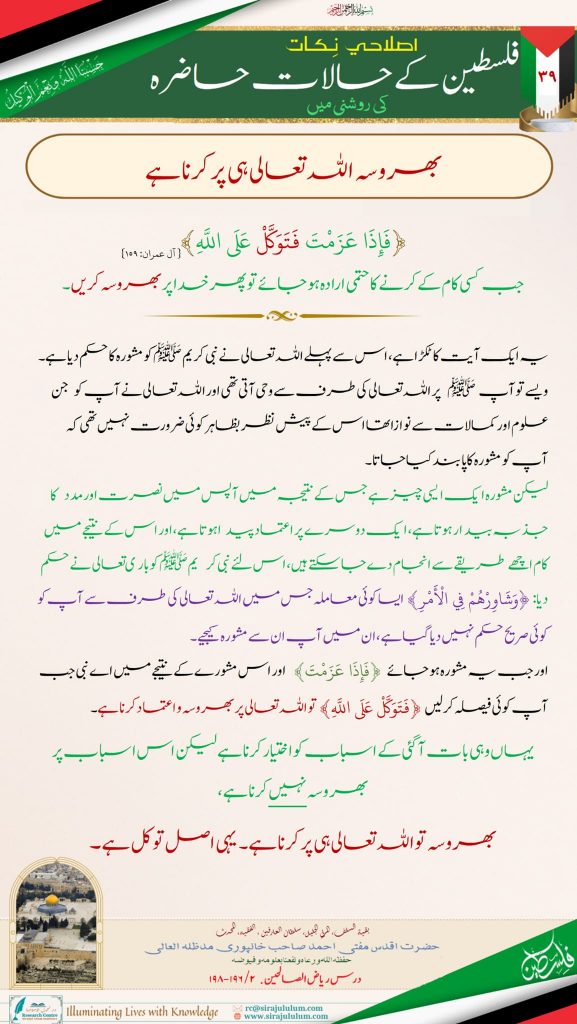 بسم اللہ الرحمن الرحیم
حَسْبُنَا اللّٰهُ وَنِعْمَ الْوَكِيْل
اصلاحی نِکات
فلسطین کے حالات حاضرہ
کی روشنی میں
۳۹
بھروسہ اللہ تعالی ہی پر کرنا ہے
﴿فَإِذَا عَزَمْتَ فَتَوَكَّلْ عَلَى اللَّهِ﴾ [آل عمران: ۱۵۹]
جب کسی کام کے کرنے کا حتمی ارادہ ہو جائے تو پھر خدا پر بھروسہ کریں۔
یہ ایک آیت کا ٹکڑا ہے، اس سے پہلے اللہ تعالی نے نبی کریم ﷺ کو مشورہ کا حکم دیا ہے۔
ویسے تو آپ ﷺ پر اللہ تعالی کی طرف سے وحی آتی تھی اور اللہ تعالی نے آپ کو جن
علوم اور کمالات سے نوازا تھا اس کے پیش نظر بظاہر کوئی ضرورت نہیں تھی کہ
آپ کو مشورہ کا پابند کیا جاتا۔
لیکن مشورہ ایک ایسی چیز ہے جس کے نتیجہ میں آپس میں نصرت اور مدد کا
جذبہ بیدار ہوتا ہے، ایک دوسرے پر اعتماد پیدا ہوتا ہے، اور اس کے نتیجے میں
کام اچھے طریقے سے انجام دے جا سکتے ہیں، اس لئے نبی کریم ﷺ کو باری تعالی نے حکم
دیا: ﴿وَشَاوِرْهُمْ فِي الْأَمْرِ﴾ ایسا کوئی معاملہ جس میں اللہ تعالی کی طرف سے آپ کو
کوئی صریح حکم نہیں دیا گیا ہے، ان میں آپ ان سے مشورہ کیجیے۔
اور جب یہ مشورہ ہو جائے ﴿فَإِذَا عَزَمْتَ﴾ اور اس مشورے کے نتیجے میں اے نبی جب
آپ کوئی فیصلہ کر لیں ﴿فَتَوَكَّلْ عَلَى اللَّهِ﴾ تو اللہ تعالی پر بھروسہ و اعتماد کرنا ہے۔
یہاں وہی بات آگئی کے اسباب کو اختیار کرنا ہے لیکن اس اسباب پر
بھروسہ نہیں کرنا ہے،
بھروسہ تو اللہ تعالی ہی پر کرنا ہے۔ یہی اصل توکل ہے۔
حضرت اقدس مفتی احمد صاحب خانپوری مدظلہ العالی
حفظه الله ورعاه ونفعنا بعلومه وفيوضه
درس ریاض الصالحین. ۲/ ۱۹۶-۱۹۸
فلسطین
Research Centre
Illuminating Lives with Knowledge
rc@sirajululum.com
www.sirajululum.com